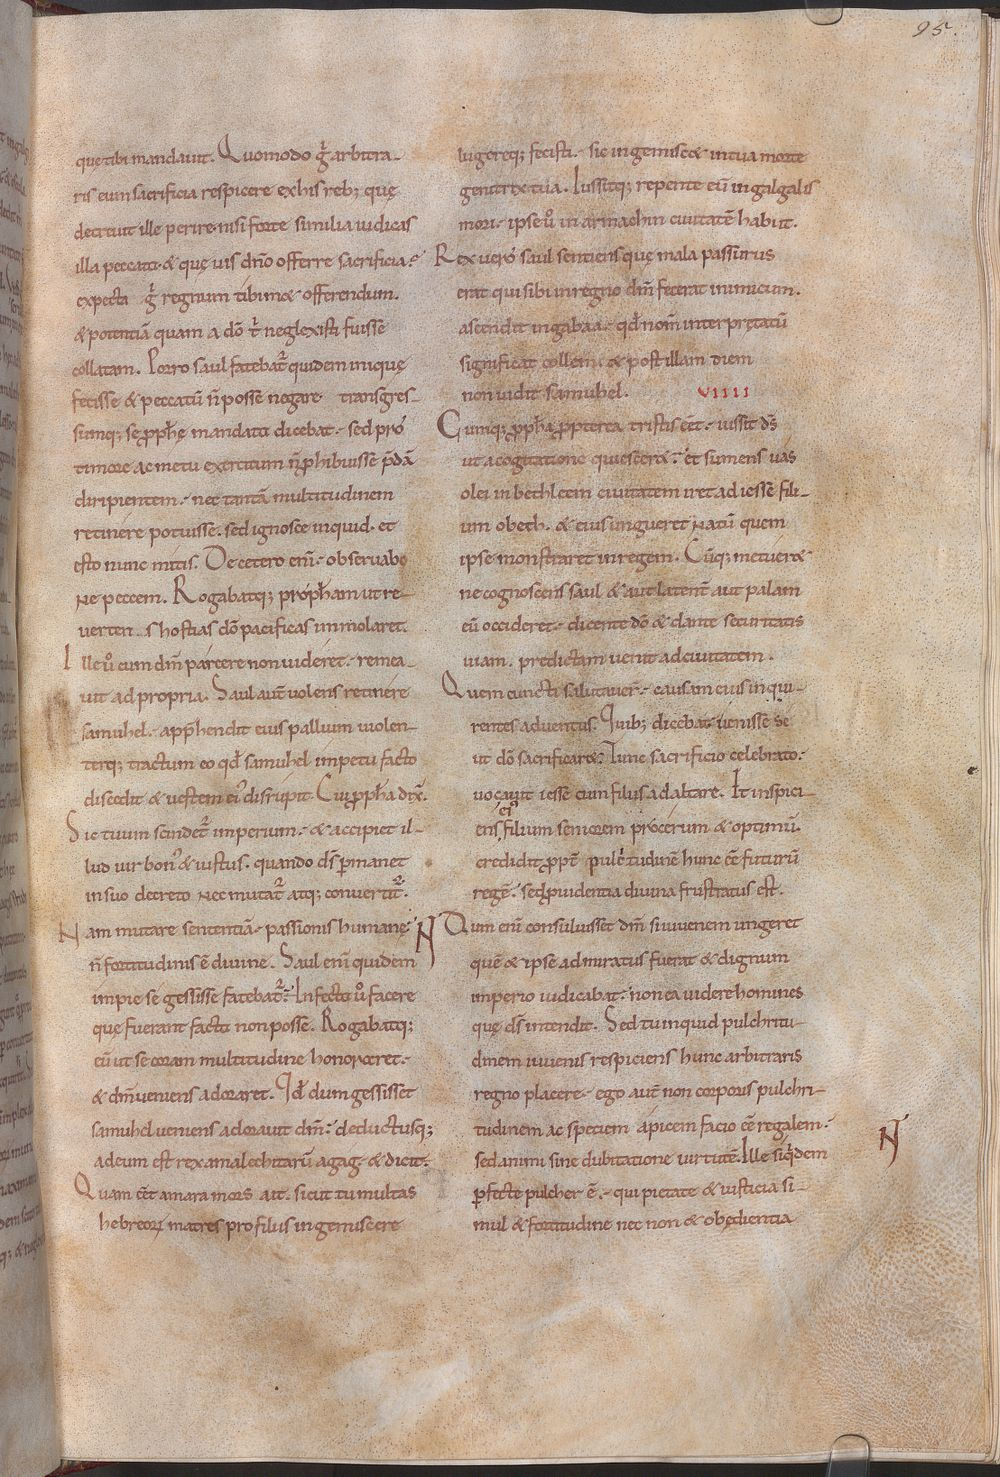 95.
quę tibi mandauit. Quomodo g̃ arbitra-
ris eum sacrificia respicere ex his reb; quę
decreuit ille perire. nisi forte similia iudicas
illa peccati. & quę uis dn̄o offerre sacrificia.
expecta g̃ regnum tibim& offerendum.
& potentiā quam a dō t̄ neglexisti fuisse
collatam. Porro saul fatebat᷑ quidem inique
fecisse & peccatū n̄ posse negare transgres-
sumq; se ꝓph̄ę mandata dicebat. sed prę
timore ac metu exercitum n̄ ꝓhibuisse p̄dā
diripientem. nec tantā multitudinem
retinere potuisse. sed ignosce inquid. et
esto nunc mitis. De cetero eni᷑. obseruabo
ne peccem. Rogabatq; proph̄am ut re-
uerten s hostias dō pacificas immolaret.
Ille u͛ cum dm̄ parcere non uideret. remea-
uit ad propria. Saul aut̄ uolens retinere
samuhel. app̄hendit eius pallium uiolen-
terq; tractum eo qd̄ samuhel impetu facto
discedit & uestem ei᷒ disrupit. Cui ꝓph̄a dix̄.
Sic tuum scindet᷑ imperium. & accipiet il-
lud uir bon᷒ & iustus. quando ds̄ ꝑmanet
in suo decreto nec mutat᷑ atq; conuertit᷑.
Nam mutare sententiā. passionis humanę
n̄ fortitudinis ē diuine. Saul eni᷑ quidem
impie se gessisse fatebat᷑. Infecta u͛ facere
quę fuerant facta non posse. Rogabatq;
eū ut se coram multitudine honoraret.
& dm̄ ueniens adoraret. Id̄ dum gessisset
samuhel ueniens adorauit dm̄. deductusq;
ad eum est rex amalechitarū agag. & dicit.
Quam ēēt amara mors ait. sicut tu multas
hebreoꝝ matres pro filiis ingemiscere
lugereq; fecisti. sic ingemisc& in tua morte
genitrix tua. Iussitq; repente eū in galgalis
mori. ipse u͛ in armathin ciuitatē habiit.
Rex uero saul sentiens quę mala passurus
erat qui sibi in regno dm̄ fecerat inimicum.
ascendit in gabaa. qd̄ nom̄ interpretatū
significat collem. & post illam diem
non uidit samuhel. VIIII
Cumq; ꝓph̄a ꝓpterea tristis ēēt. iussit ds̄
ut a cogitatione quiescer&. et sumens uas
olei in bethleem ciuitatem iret ad iesse fili-
um obeth. & eius ungueret natū quem
ipse monstraret in regem. Cūq; metuer&
ne cognoscens saul & aut latent̄ aut palam
eū occideret. dicente dō & dante securitatis
uiam. predictam uenit ad ciuitatem.
Quem cuncti salutauer̄. causam eius inqui-
rentes aduentus. Quib; dicebat uenisse se
ut dō sacrificar&. Tunc sacrificio celebrato.
uocauit iesse cum filiis ad altare. Et inspici-
ens ei᷒ filium seniorem procerum & optimū.
credidit ꝓpt̄ pulcritudinē hunc ēē futurū
regē. sed ꝓuidentia diuina frustratus est.
N Dum eni᷑ consuluisset dm̄ si iuuenem ungeret
quē & ipse admiratus fuerat & dignum
imperio iudicabat. non ea uidere homines
quę ds̄ intendit. Sed tu inquid pulchritu-
dinem iuuenis respiciens hunc arbitraris
regno placere. ego aut̄ non corporis pulchri-
tudinem ac speciem apicem facio ēē regalem.
N
sed animi sine dubitatione uirtutē. Ille siq̇dem
ꝑfecte pulcher ē. qui pietate & iusticia si-
mul & fortitudine nec non & obędientia